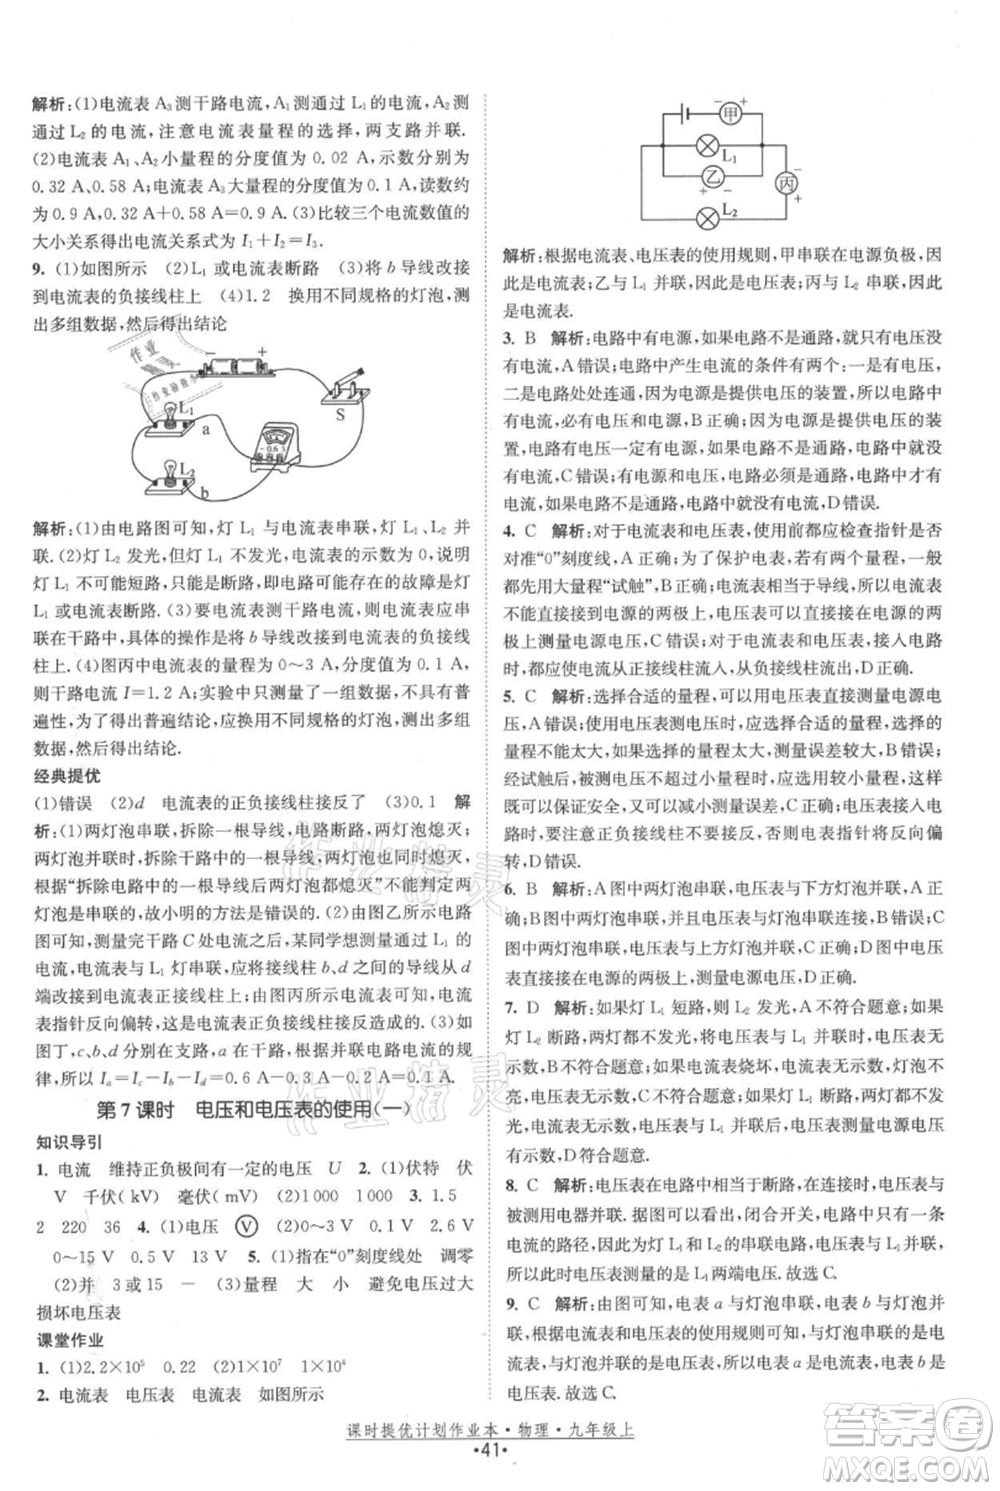 解析:(1)电流表 A₃ 测干路电流,A₁测通过 L₁ 的电流,A₂ 测
通过 L₂ 的电流,注意电流表量程的选择,两支路并联.
(2)电流表 A₁、A₂ 小量程的分度值为 0.02 A,示数分别为
0.32 A、0.58 A;电流表 A₃ 大量程的分度值为 0.1 A,读数约
为 0.9 A,0.32 A+0.58 A=0.9 A. (3)比较三个电流数值的
大小关系得出电流关系式为 I₁+I₂=I₃.
9. (1)如图所示 (2)L₁ 或电流表断路 (3)将 b 导线改接
到电流表的负接线柱上 (4)1.2 换用不同规格的灯泡,测
出多组数据,然后得出结论
− +
L₁
a
S
−0.6 3
L₂
b
解析:(1)由电路图可知,灯 L₁ 与电流表串联,L₁、L₂ 并
联.(2)灯 L₂ 发光,但灯 L₁ 不发光,电流表的示数为 0,说明
灯 L₁ 不可能短路,只能是断路,即电路可能存在的故障是灯
L₁ 或电流表断路. (3)要电流表测干路电流,则电流表应串
联在干路中,具体的操作是将 b 导线改接到电流表的负接线
柱上. (4)图丙中电流表的量程为 0～3 A,分度值为 0.1 A,
则干路电流 I=1.2 A,实验中只测量了一组数据,不具有普
遍性,为了得出普遍结论,应换用不同规格的灯泡,测出多组
数据,然后得出结论.
经典提优
(1)错误 (2)d 电流表的正负接线柱接反了 (3)0.1 解
析:(1)两灯泡串联,拆除一根导线,电路断路,两灯泡熄灭;
两灯泡并联时,拆除干路中的一根导线,两灯泡都会熄灭,不
能因为“拆除电路中的一根导线,看到两灯泡都熄灭”就认为
两灯泡串联,故小明的方法是错误的. (2)由图乙所示电路
图可知,测量完干路 C 处电流之后,某同学想测量通过 L₁ 的
电流,电流表与 L₁ 灯串联,应将导线 b、d 之间的导线从 d
端改接到电流表正接线柱上;由图丙所示可知,接通电路,电
流表指针反向偏转,这说明电流表正负接线柱接反了. (3)如
图丁,c、b、d 分别在支路,a 在干路,根据并联电路电流的规
律,所以 Ic=Ia−Ib−Id=0.6 A−0.3 A−0.2 A=0.1 A.
第 7 课时 电压和电压表的使用(一)
知识导引
1. 电流 维持正负极间有一定的电压 U 2. (1)伏特 伏
V 千伏(kV) 毫伏(mV) (2)1 000 1 000 3. 1.5
2 220 36 4. (1)电压 V (2)0～3 V 0.1 V 2.6 V
0～15 V 0.5 V 13 V 5. (1)指在“0”刻度线处 调零
(2)并 3或15 − (3)量程 大 小 避免电压过大
损坏电压表
课堂作业
1. (1)2.2×10⁵ 0.22 (2)1×10⁷ 1×10⁴
2. 电流表 电压表 电流表 如图所示
− 甲 +
L₁
− 乙 +
+ 丙 −
L₂
解析:根据电流表、电压表的使用规则,甲串联在电源负极,
因此是电流表;乙与 L₁ 并联,因此是电压表;丙与 L₂ 串联,因此
是电流表.
3. B 解析:电路中有电源,如果电路不是通路,电路中就没
有电流,A 错误;电路中产生电流的条件:一是电路中有电源,
二是电路处处连通,因为电源是提供电压的装置,所以电路中
有电流,必须有电压,B 正确;电源是电路中提供电压的装
置,有电源就有电压,如果电路不是通路,则电路中就不会有
电流,C 错误;有电压时,电路必须是通路,电路中才能有电
流,如果是断路,虽然电路两端有电压,也没有电流,D 错误.
4. C 解析:对于电流表和电压表,使用前都应检查指针是否
对准“0”刻度线,A 正确;为了保护电表,若有两个量程,一般
都先用大量程“试触”,B 正确;电流表相当于导线,所以不能
直接接到电源的两极上,电压表可以直接接在电源的两极
上测量电源电压,C 错误;对于电流表和电压表,接入电路
时,都应使电流从正接线柱流入,从负接线柱流出,D 正确.
5. C 解析:选择合适的量程,可以用电压表直接测量电源电
压,A 错误;使用电压表测电压时,应选择合适的量程,所选
量程不能太大,如果量程太大,测量误差较大,B 错误;未
经试触而不知道被测电压是否超过电压表量程时,通过试触
可以保证安全,即防止电压超过量程,C 正确;将电压表接入
电路时,要注意正负接线柱不要接反,否则电表指针将反向偏
转,D 错误.
6. B 解析:A 图中两灯泡串联,电压表与下方灯泡并联,A 正
确;B 图中两灯泡并联,电压表与灯泡串联连接,B 错误;C 图
中两灯泡串联,电压表与上方灯泡并联,C 正确;D 图中电压
表直接接在电源的两极上,测量电源电压,D 正确.
7. D 解析:如果灯 L₁ 短路,则 L₂ 发光,A 不符合题意;如果
灯 L₂ 断路,两灯都不发光,将电压表与 L₁ 并联时,电压表无
示数,B 不符合题意;如果电流表烧坏,电路断路,电压表无示
数,C 不符合题意;如果灯 L₁ 断路,两灯都不发光,将电压表
与 L₁ 并联时,电压表有示数,D 符合题意.
8. C 解析:电压表在电路中相当于断路,使用时,需要与被
测的用电器并联.由图可以看出,闭合开关,电路中只有一条
电流的路径,因为灯 L₁ 和 L₂ 是串联电路,电压表与灯 L₁ 并
联,所以此时电压表测量的是 L₁ 两端电压.故选 C.
9. C 解析:由图可知,电表 a 与灯泡串联,电表 b 与灯泡并
联,由于电流表与灯泡串联,电压表与灯泡并联,所以电表 a
是电流表,电表 b 是电压表,所以电表 a 是电流表、电表 b 是
电压表,故选 C.
课时提优计划作业本·物理·九年级上
·41·
作业精灵
作业精灵
答案圈
MXQE.COM